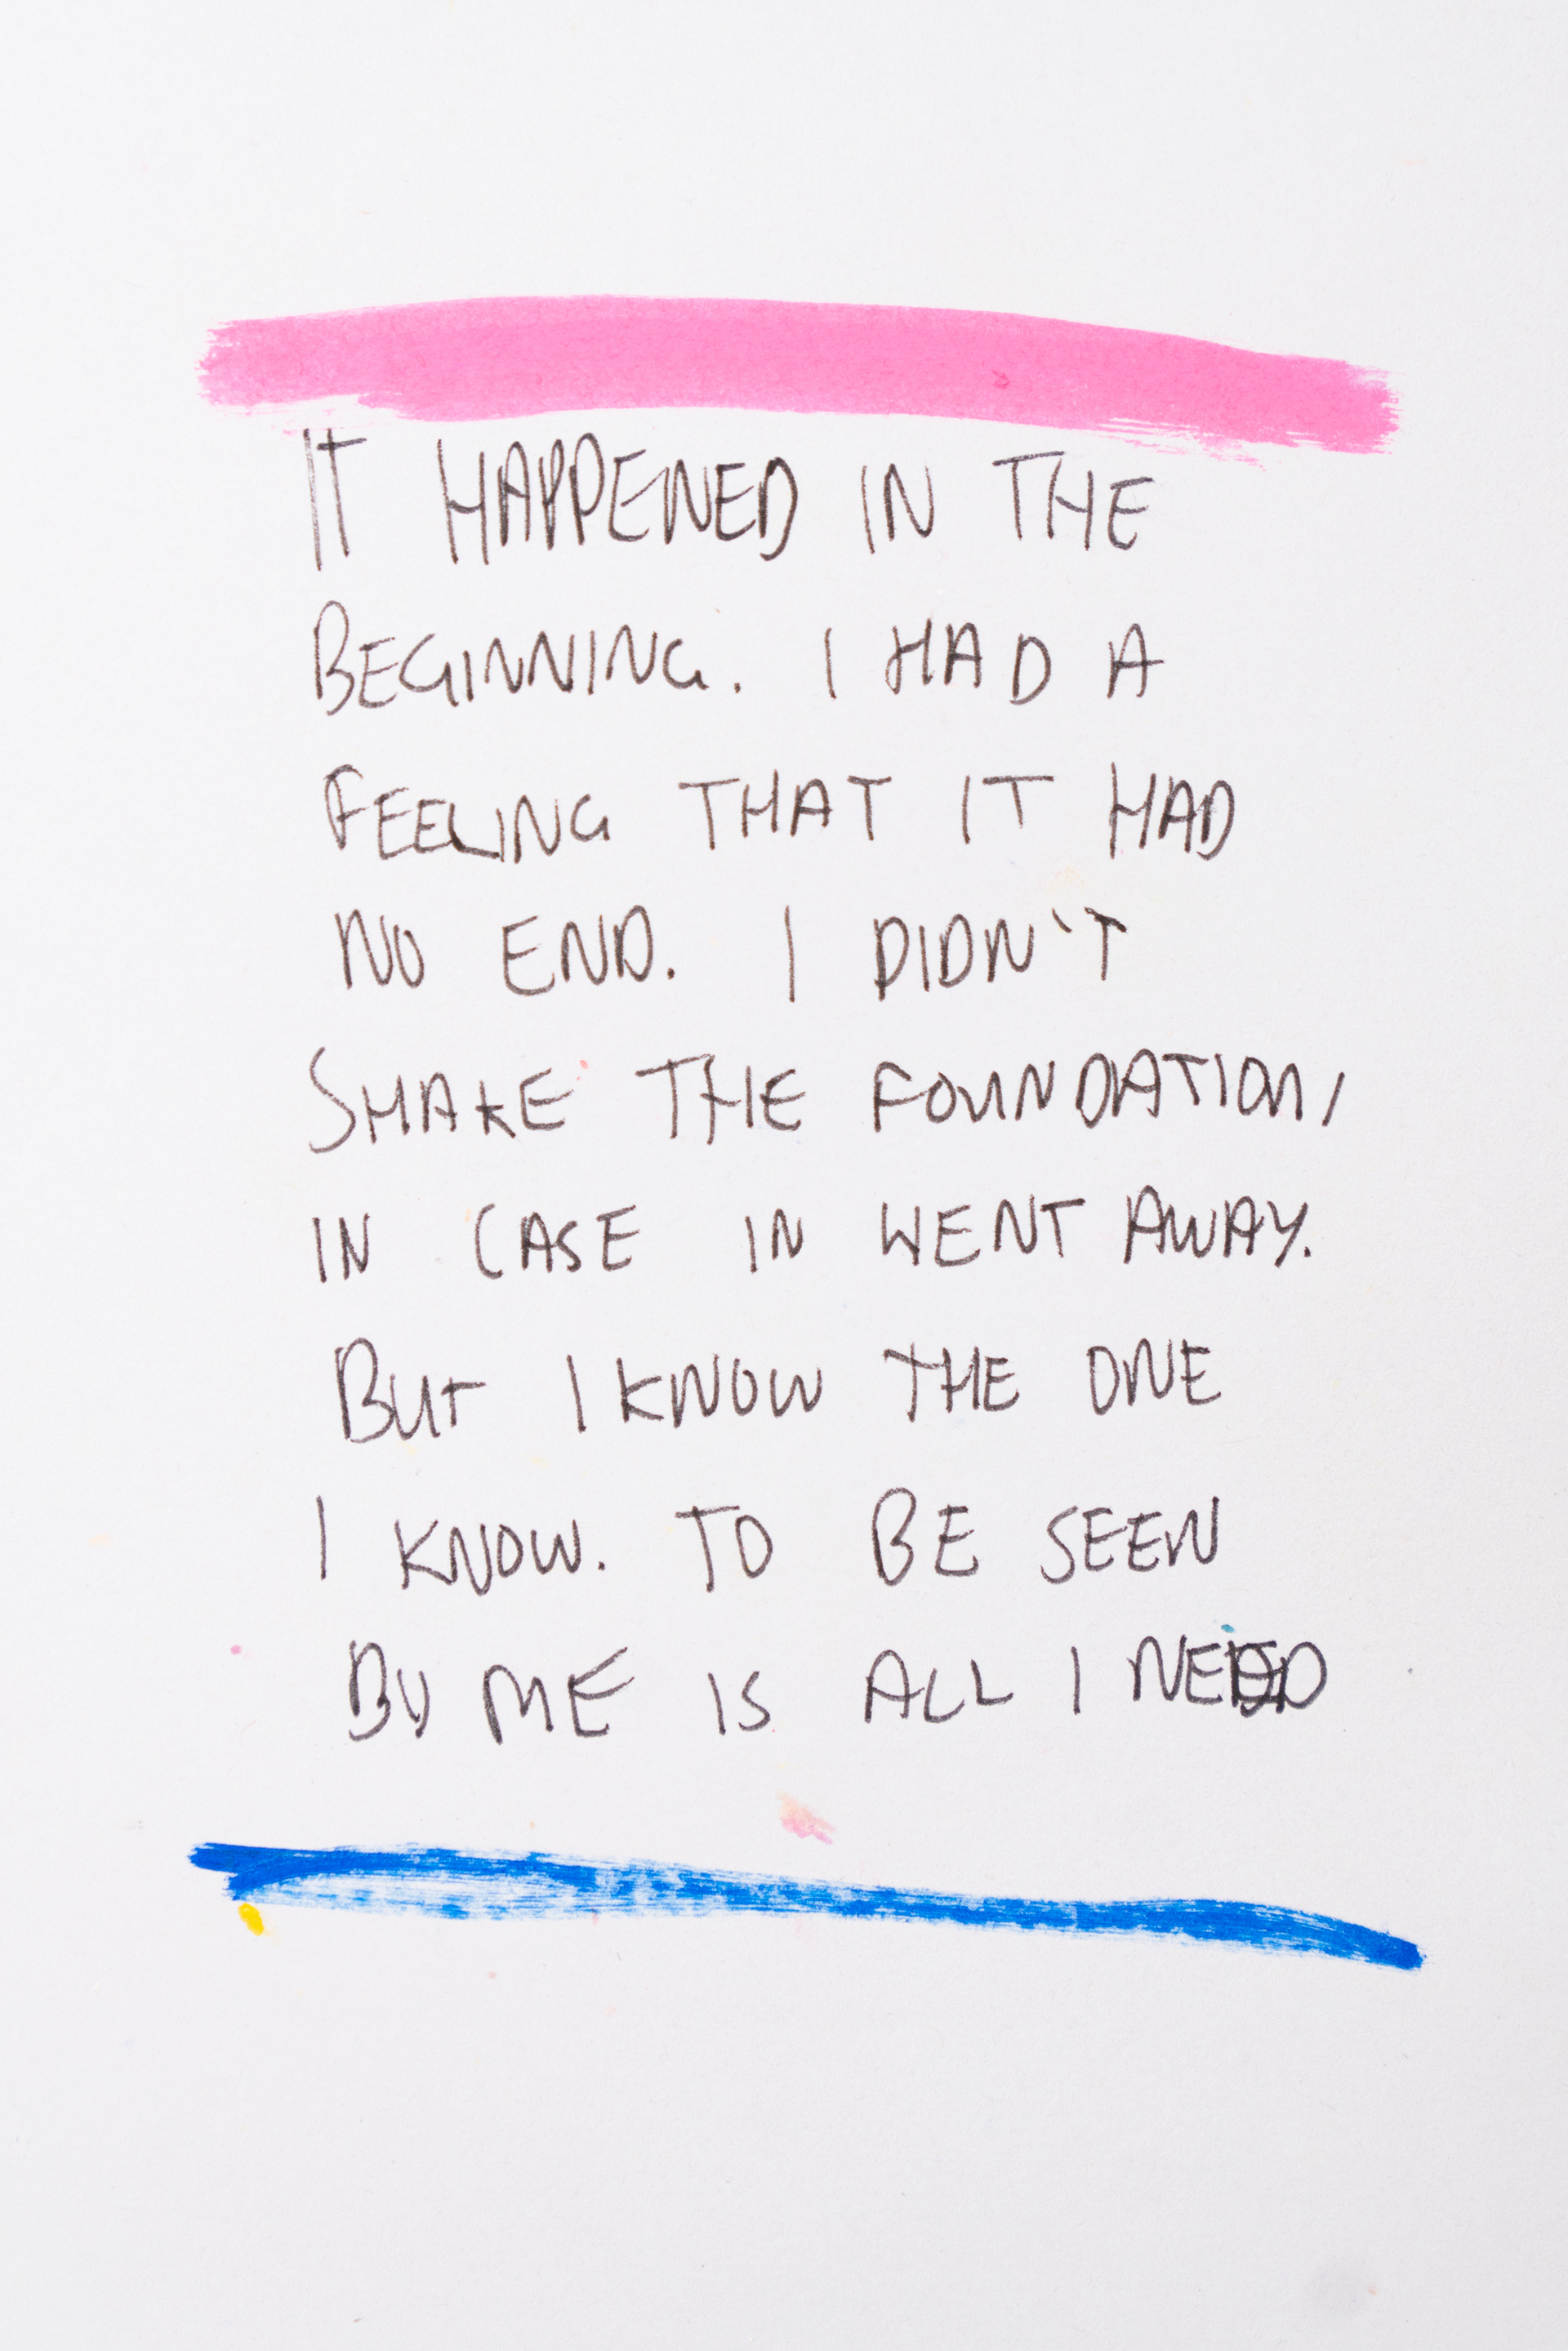 IT HAPPENED IN THE
BEGINNING. I HAD A
FEELING THAT IT HAD
NO END. I DIDN'T
SHAKE THE FOUNDATION,
IN CASE IN WENT AWAY.
BUT I KNOW THE ONE
I KNOW. TO BE SEEN
BY ME IS ALL I NEED